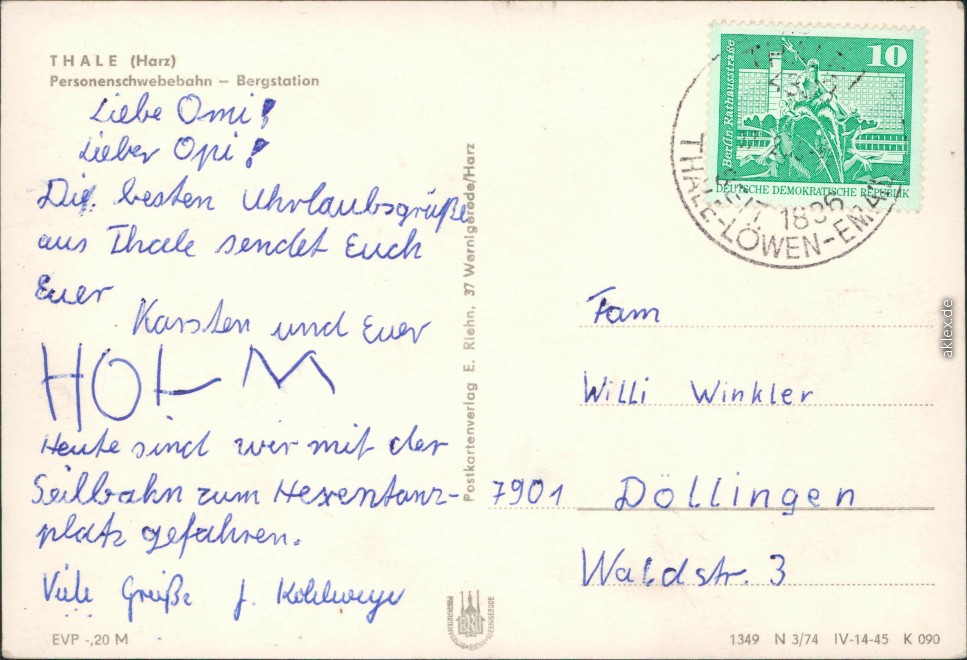 THALE (Harz)
Personenschwebebahn – Bergstation
Liebe Omi!
Lieber Opi!
Die besten Uhrlaubsgrüße
aus Thale sendet Euch
Euer
Karsten und Euer
HOLM
Heute sind wir mit der
Seilbahn zum Hexentanz-
platz gefahren.
Viele Grüße
EVP -,20 M
Postkartenverlag E. Riehn, 37 Wernigerode/Harz
10
Berlin·Rathausstraße
DEUTSCHE DEMOKRATISCHE REPUBLIK
SEIT 1836
THALE-LÖWEN-EMAIL
Fam
Willi Winkler
7901 Döllingen
Waldstr. 3
1349 N 3/74 IV-14-45 K 090
aklex.de